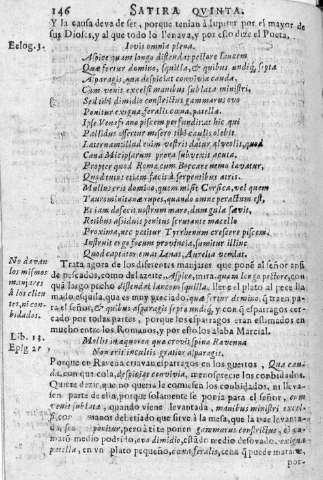 146 SATIRA QVINTA.
Y la causa deva de ser, porque tenian à Iupiter por el mayor de
sus Dioses, y al que todo lo llenava, y por esso dize el Poeta.
Eclog. 3. Iovis omnia plena.
Aspice quam longo distendat pectore lancem
Quae fertur domino, squilla, & quibus undiq; septa
Asparagis, qua despiciat convivia cauda,
Cum venit excelsi manibus sublata ministri,
Sed tibi dimidio constrictus gammarus ovo
Ponitur exigua feralis coena patella.
Ipse Venefrano piscem perfundit, at hic qui
Pallidus offertur misero tibi caulis olebit
Laternam, illud enim vestris datur alveolis, quod
Canna Micipsarum prora subvexit acuta.
Propter quod Romae cum Boccare nemo lavatur,
Quod tutos etiam facit à serpentibus atris.
Mullus erit domino, quem misit Corsica, vel quem
Tauromenitanae rupes, quando omne peractum est,
Et iam defecit nostrum mare, dum gula saevit,
Retibus assiduis penitus scrutante macello
Proxima, nec patitur Tyrrhenum crescere piscem.
Instruit ergo focum provincia, sumitur illinc
Quod captator emat Lenas, Aurelia vendat.
No davan
los mismos
manjares
à los clien
tes, ni con-
bidados.
Trata agora de los diferentes manjares que ponè al señor ansi
de pescados, como del azeite. Aspice, mira, quam longo pectore, con
quà largo pecho distendat lancem squilla, llene el plato al pece lla
mado esquila, que es muy preciado, quae fertur domino, q̃ traen pa-
ra el señor, & quibus asparagis septa undiq; y con q̃ esparragos cer-
cado por todas partes, porque los esparragos eran estimados en
mucho entre los Romanos, y por esto los alaba Marcial.
Lib. 13.
Epig. 21. Mollis in aequorea quae crevit spina Ravenna
Non erit incultis gratior asparagis.
Porque en Ravena criavan esparragos en los guertos, Qua cau-
da, con que cola, despiciat convivia, menosprecie los conbidados.
Quiere dezir, que no queria le comiessen los conbidados, ni lleva-
sen parte de el, porque solamente se ponia para el señor, cum
venit sublata, quando viene levantada, manibus ministri excel-
si, con manos del criado que sirve à la mesa, que la trae levanta-
da, sed ponitur, pero à ti te ponen gammarus constrictus, el ca-
marò medio podrido, ovo dimidio, està de medio desovado, exigua
patella, en vn plato pequeño, coena feralis, cena q̃ puede matar,
por-